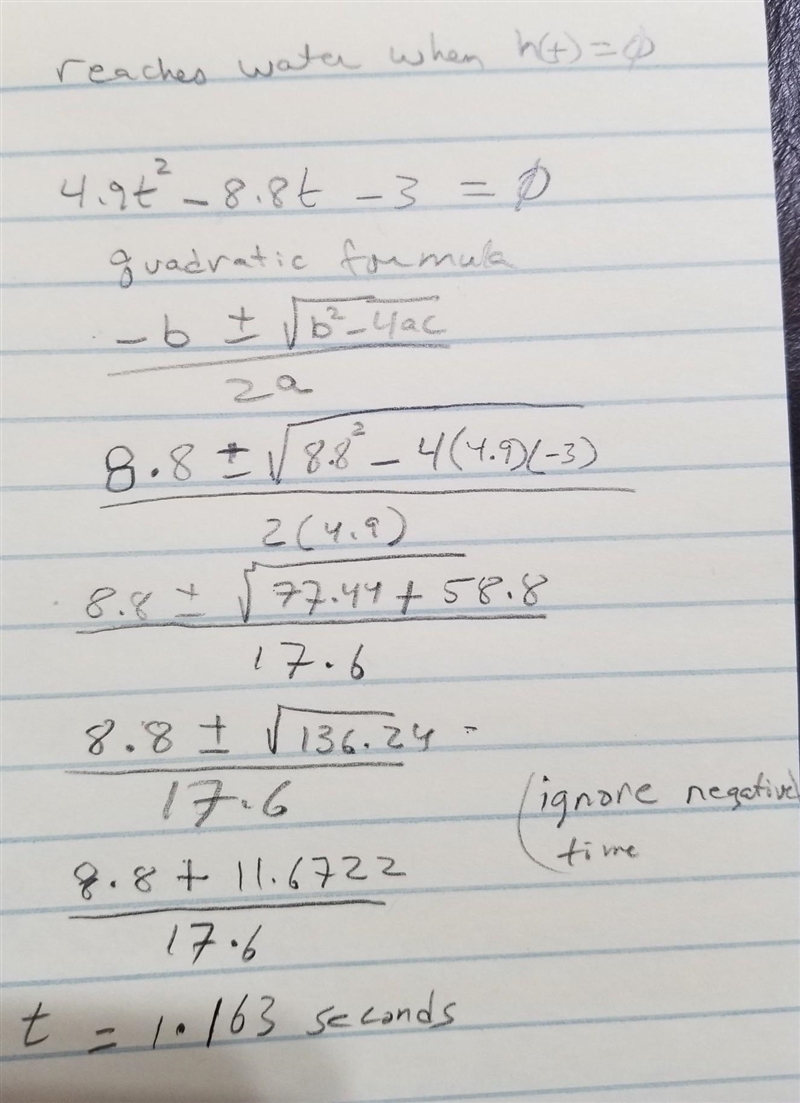 reaches water when h(t) = 0
4.9t² - 8.8t - 3 = 0
quadratic formula
-b ± √b²-4ac
2a
8.8 ± √8.8² - 4(4.9)(-3)
2(4.9)
8.8 ± √77.44 + 58.8
17.6
8.8 ± √136.24
17.6
(ignore negative
time
8.8 + 11.6722
17.6
t = 1.163 seconds